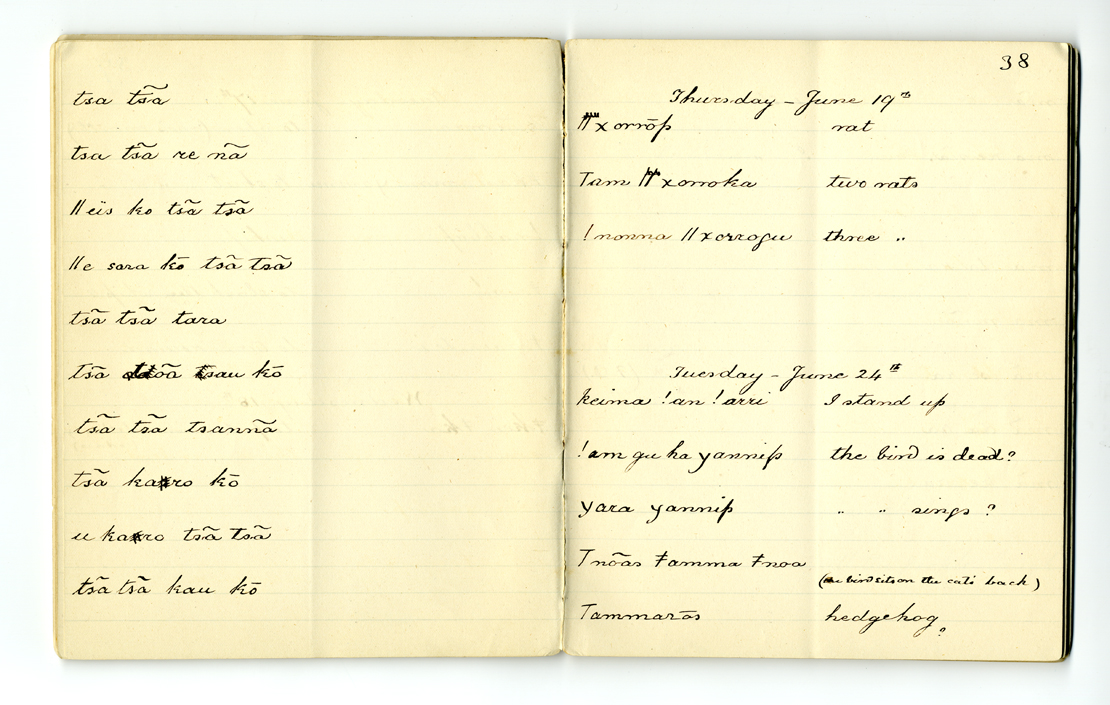 tsa tsã
tsa tsã re nã
ǁeïs ko tsã tsã
ǁe sara kō tsã tsã
tsã tsã tara
tsã tsau kō
tsã tsã tsannã
tsã karo kō
u karo tsã tsã
tsã tsã kau kō
38
Thursday – June 19th
ǁxorrōp rat
Tam ǁxorroka two rats
!nonna ǁxorrogu three „
Tuesday – June 24th
keima !an !arri I stand up
!am gu ha yannip the bird is dead?
yara yannip „ „ sings ?
Tnõas ŧamma ŧnoa
(the bird sits on the cat's back)
Tammarōs hedgehog?